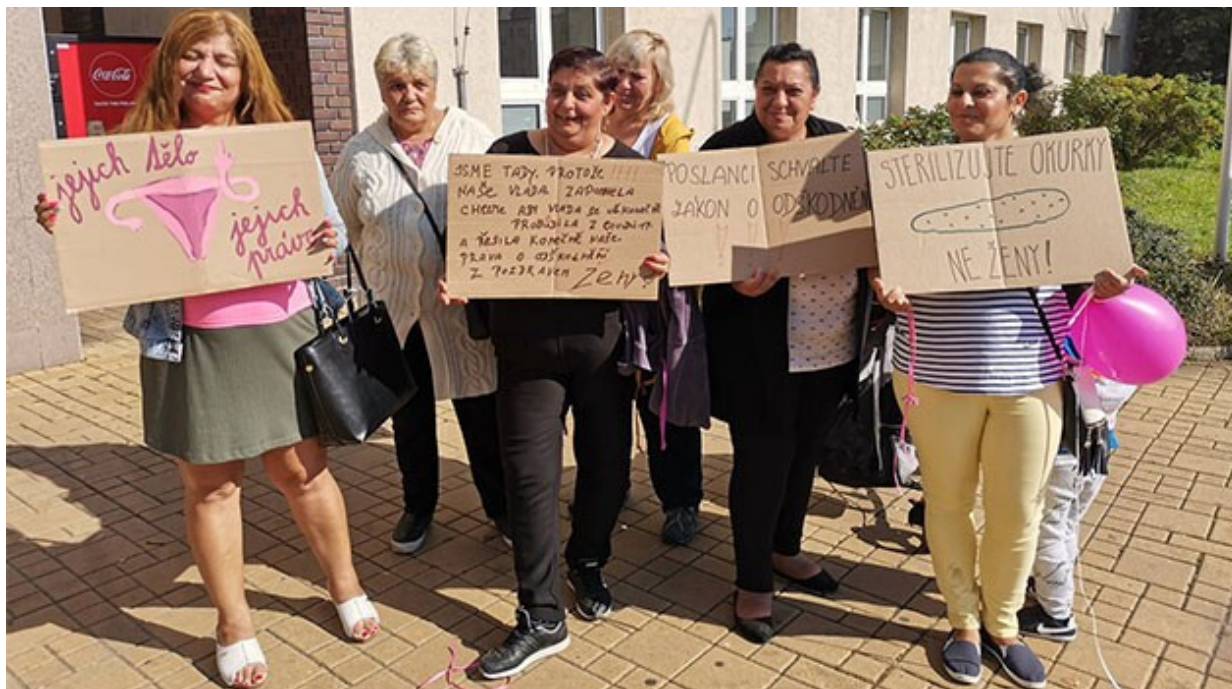 Coca-Cola
jejich tělo
jejich
právo
JSME TADY, PROTOŽE !!!!
NAŠE VLÁDA ZAPOMĚLA
ABY VLÁDA SE
PROBUDILA Z
A ŘEŠILA KONEČNĚ NAŠE
PRÁVA O
Z POZDRAVEM Ženy
POSLANCI SCHVALTE
ZÁKON O ODŠKODNĚN
STERILIZUJTE OKURKY
NE ŽENY!